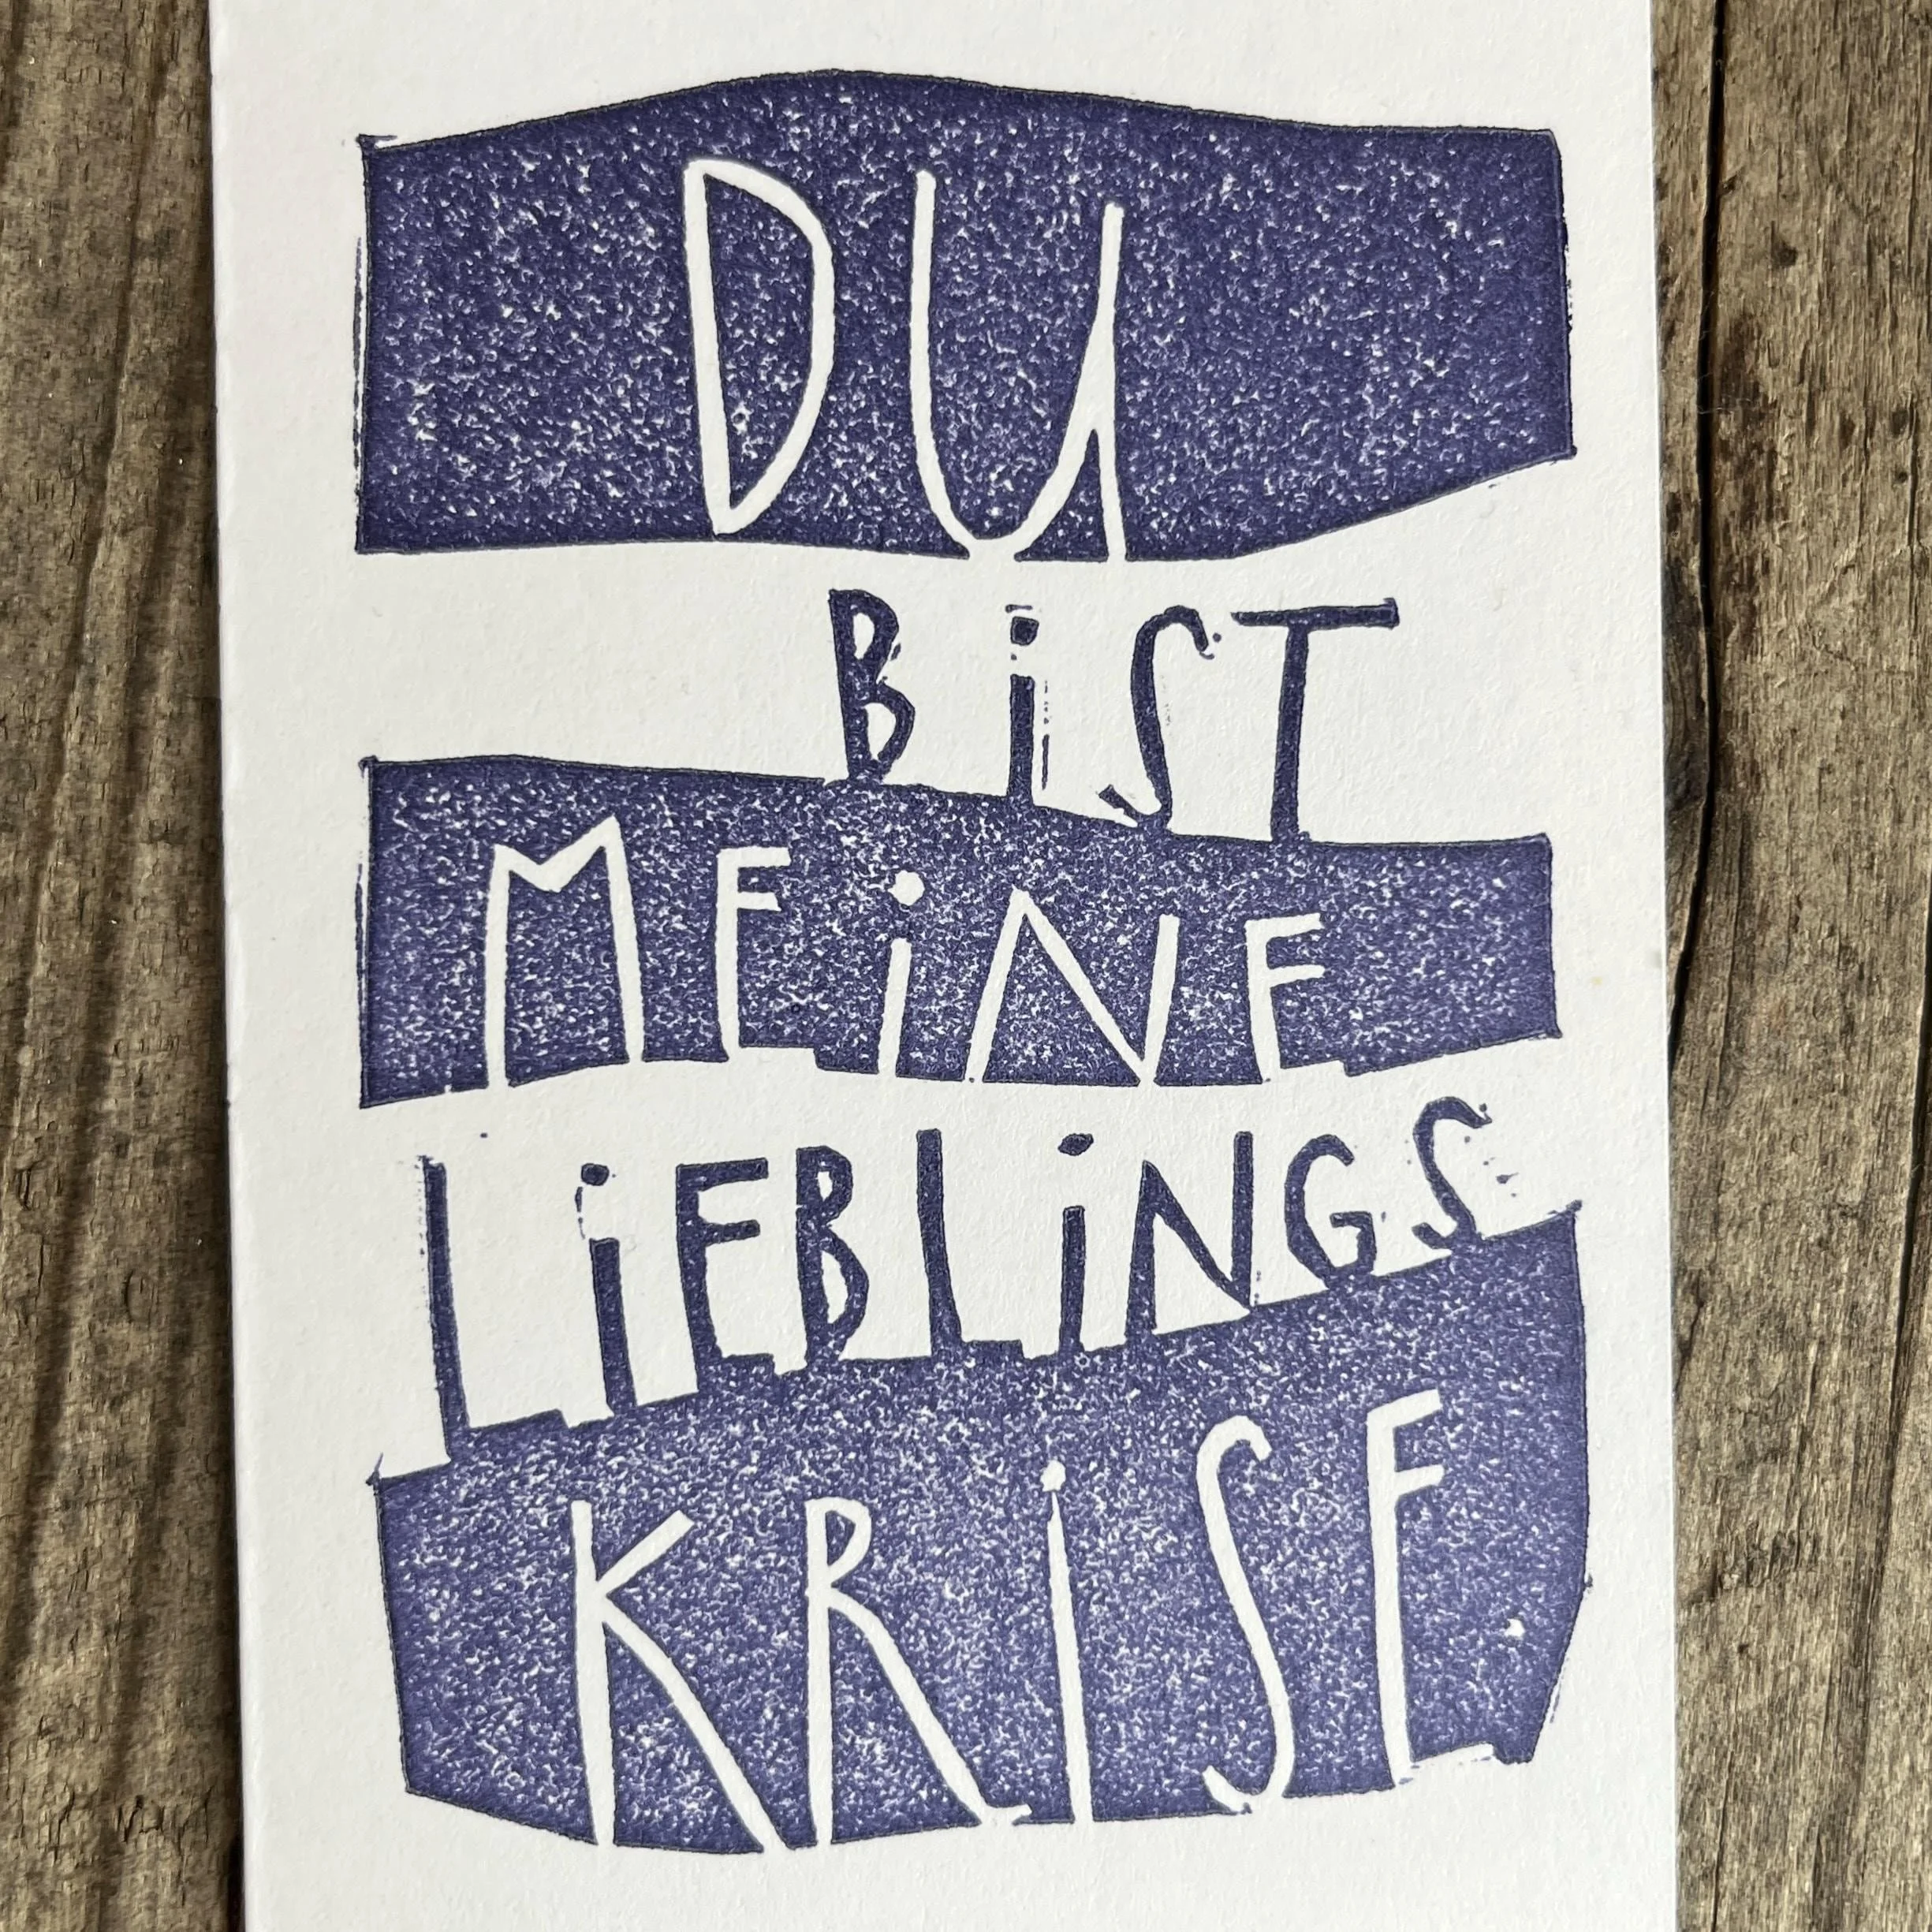 DU
BiST
MEiNE
LiEBLiNGS
KRiSE